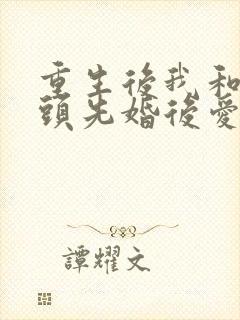 重生後我和
頭先婚後愛
譚耀文